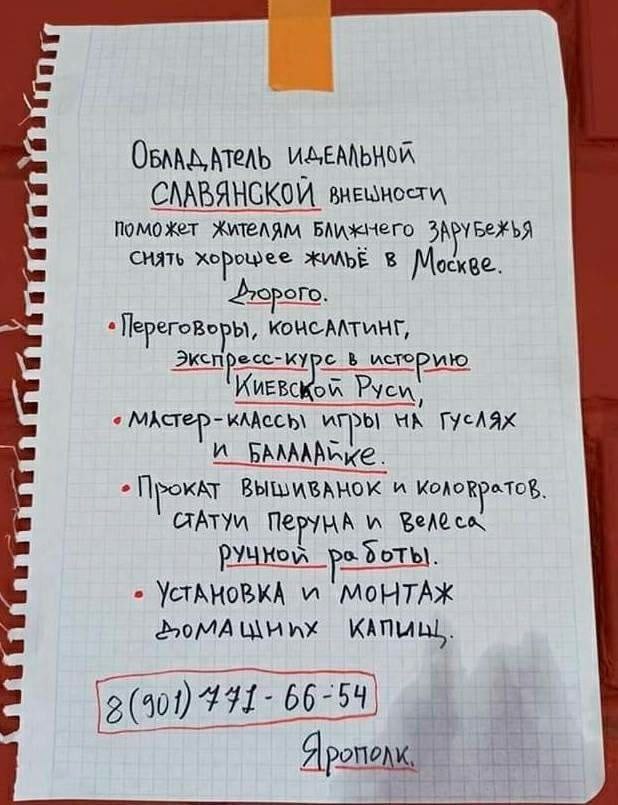 Обладатель идеальной
СЛАВЯНСКОЙ внешности
поможет жителям ближнего зарубежья
снять хорошее жильё в Москве.
Дорого.
• Переговоры, консалтинг,
экспресс-курс в историю
Киевской Руси,
• мастер-классы игры на гуслях
и балалайке.
• Прокат вышиванок и коловратов.
статуи Перуна и Велеса
ручной работы.
• Установка и монтаж
домашних капищ.
8(901) 771-66-54
Ярополк.